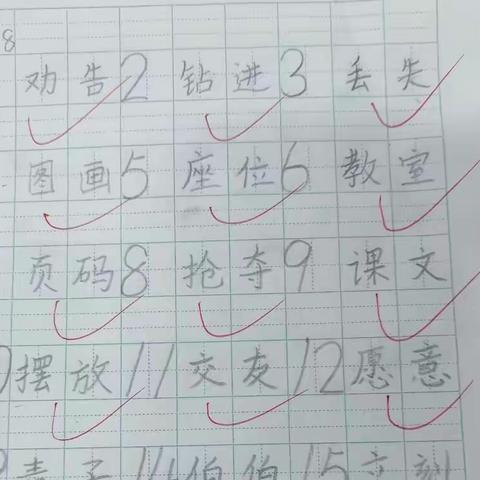 8
劝告 2 钻进 3 丢失
图画 5 座位 6 教室
页码 8 抢夺 9 课文
摆放 11 交友 12 愿意
14 伯伯 15 立刻